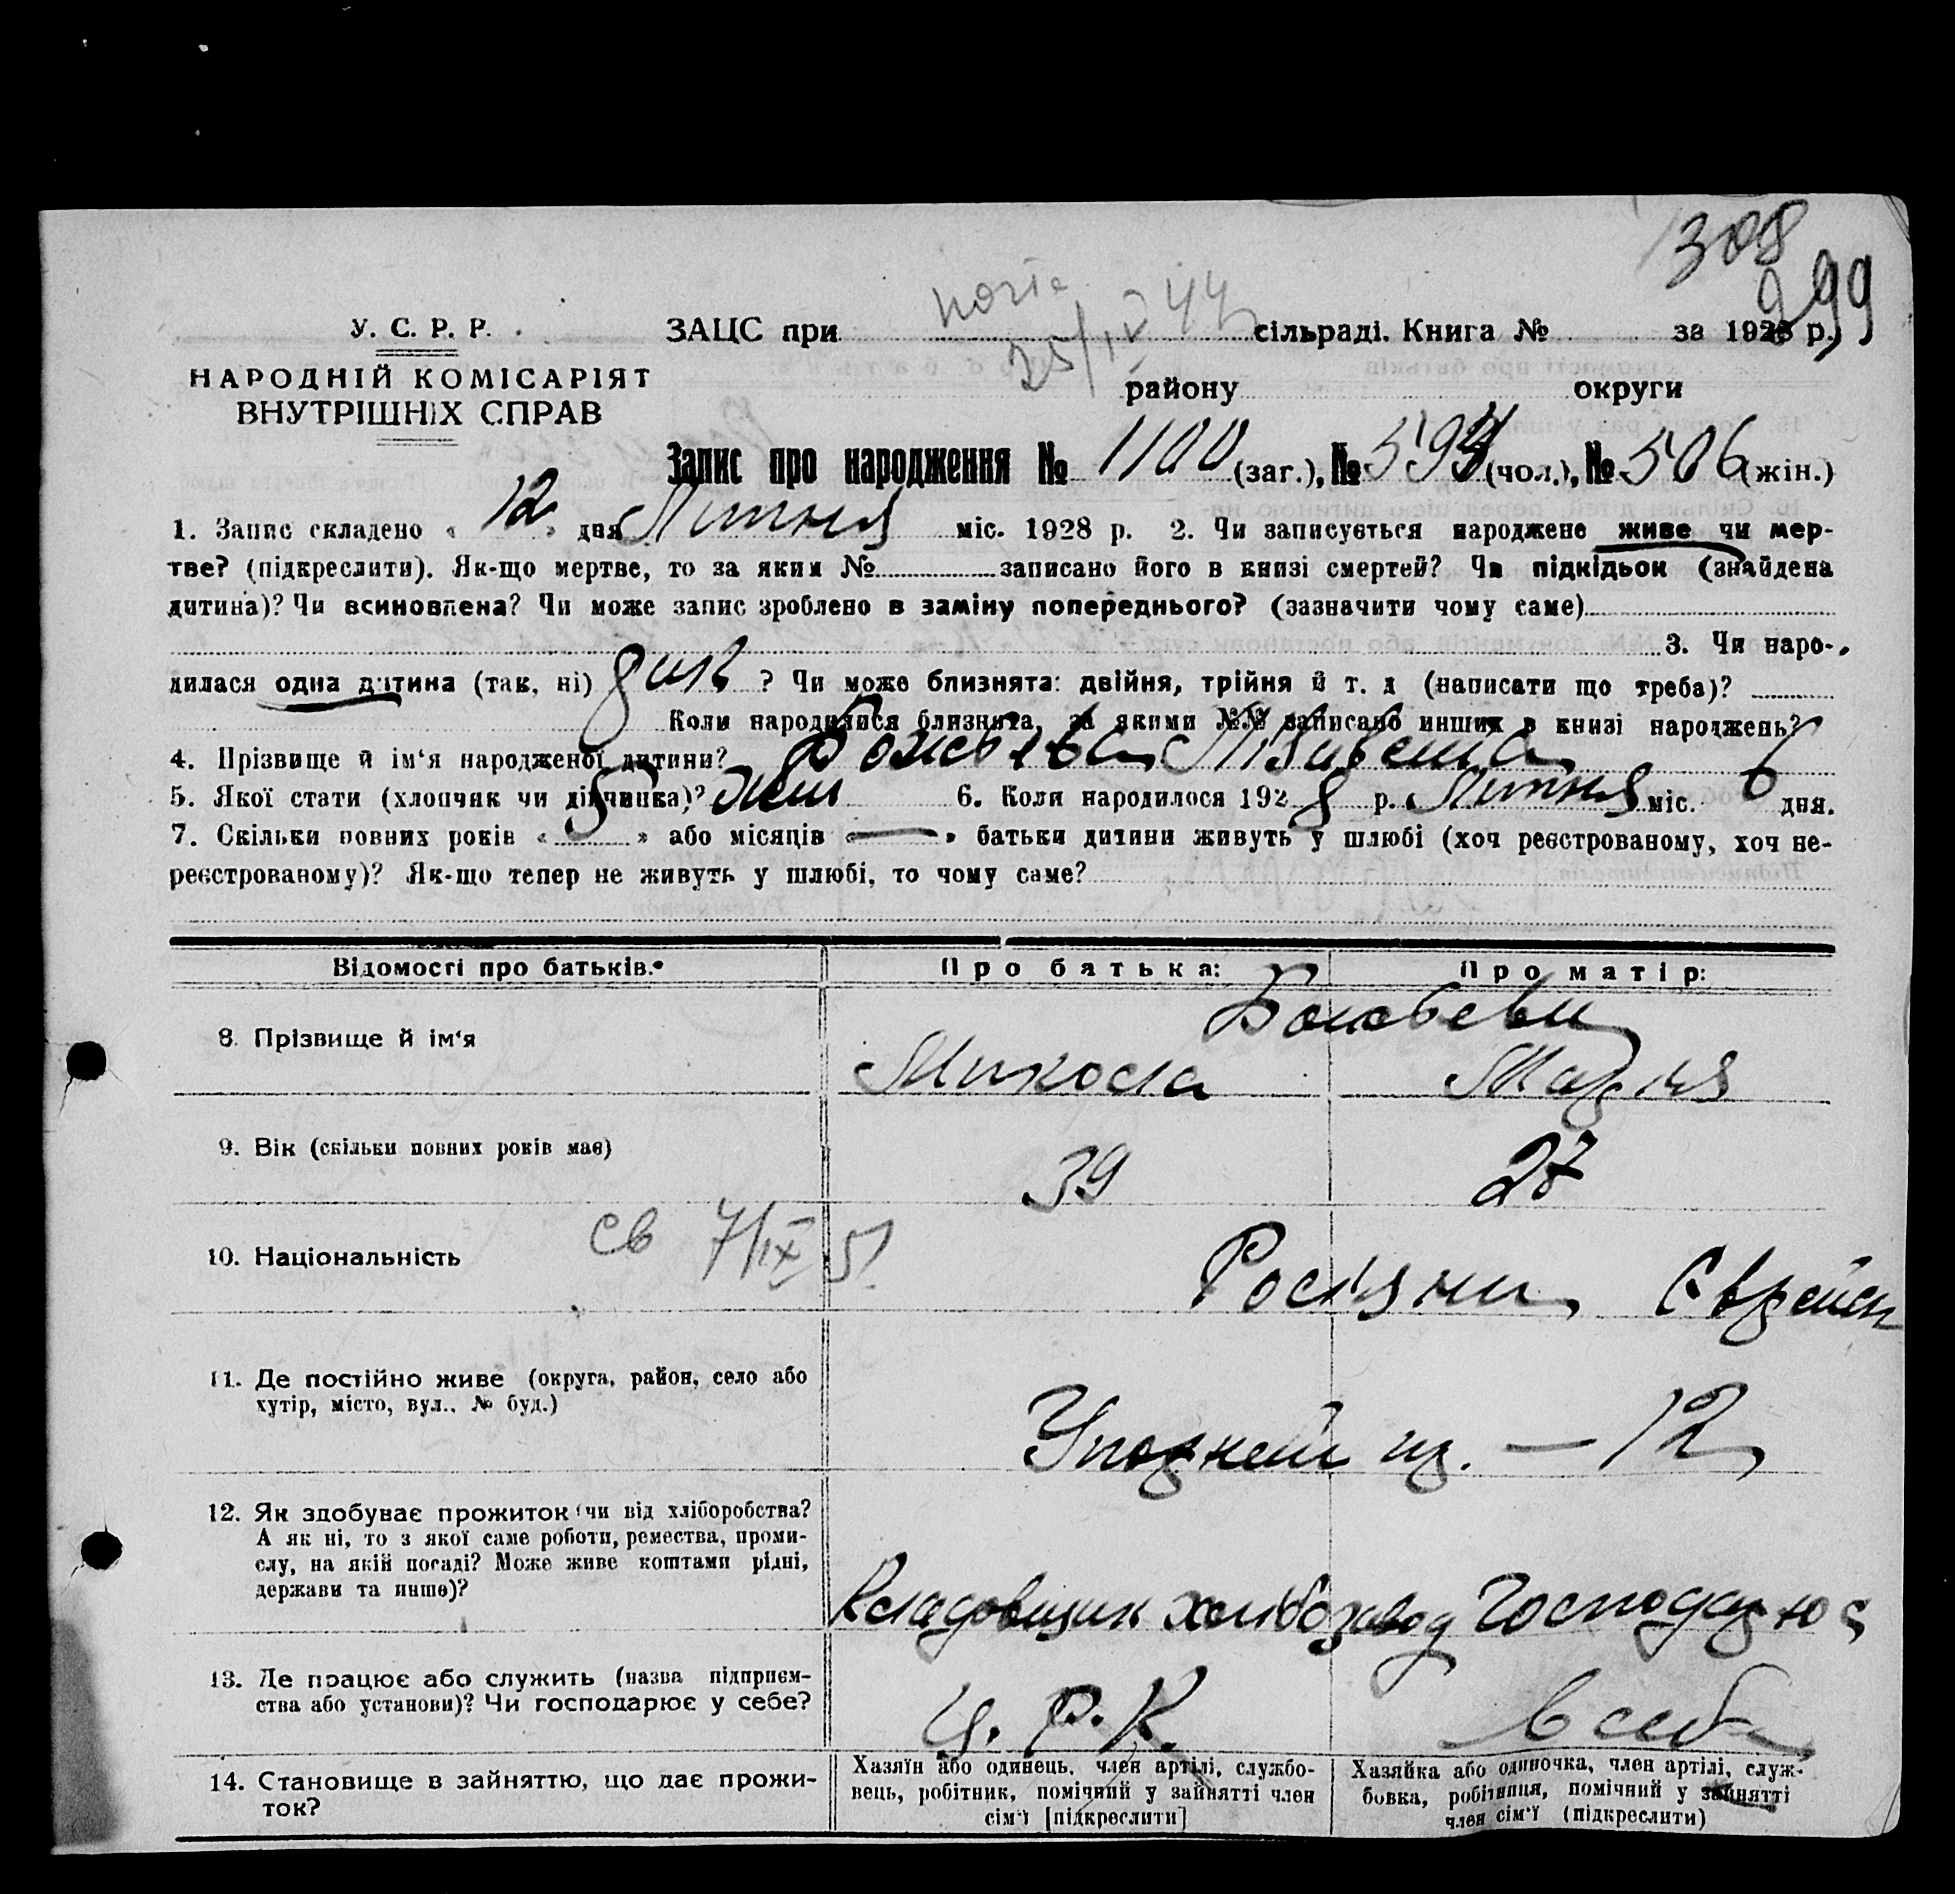 308
299
У. С. Р. Р.
НАРОДНІЙ КОМІСАРІЯТ
ВНУТРІШНІХ СПРАВ
ЗАЦС при сільраді. Книга № за 1928 р.
25/IV 44
району округи
Запис про народження № 1100 (заг.), № 594 (чол.), № 506 (жін.)
1. Запис складено « 12 » дня Липня міс. 1928 р. 2. Чи записується народжене живе чи мер-
тве? (підкреслити). Як-що мертве, то за яким № записано його в книзі смертей? Чи підкідьок (знайдена
дитина)? Чи всиновлена? Чи може запис зроблено в заміну попереднього? (зазначити чому саме)
3. Чи наро-
дилася одна дитина (так, ні) ? Чи може близнята: двійня, трійня й т. д (написати що треба)?
Коли народилися близнята, за якими №№ записано инших в книзі народжень?
4. Прізвище й ім'я народженої дитини?
5. Якої стати (хлопчик чи дівчинка)? Жін 6. Коли народилося 1928 р. Липня міс. 6 дня.
7. Скільки повних років « 5 » або місяців « — » батьки дитини живуть у шлюбі (хоч реєстрованому, хоч не-
реєстрованому)? Як-що тепер не живуть у шлюбі, то чому саме?
Відомості про батьків. Про батька: Про матір:
8. Прізвище й ім'я
Микола Марія
9. Вік (скільки повних років має) 39 27
10. Національність св 7/IX 51 Росіяни Єврейск
11. Де постійно живе (округа, район, село або
хутір, місто, вул., № буд.)
— 12
12. Як здобуває прожиток (чи від хліборобства?
А як ні, то з якої саме роботи, ремества, проми-
слу, на якій посаді? Може живе коштами рідні,
держави та инше)?
Кладовщик хлібозавод Господарює
13. Де працює або служить (назва підприєм-
ства або установи)? Чи господарює у себе?
Ц. Р. К. в себе
14. Становище в зайняттю, що дає прожи-
ток?
Хазяїн або одинець, член артілі, службо-
вець, робітник, помічний у зайнятті член
сім'ї [підкреслити]
Хазяйка або одиночка, член артілі, служ-
бовка, робітниця, помічний у зайнятті
член сім'ї (підкреслити)